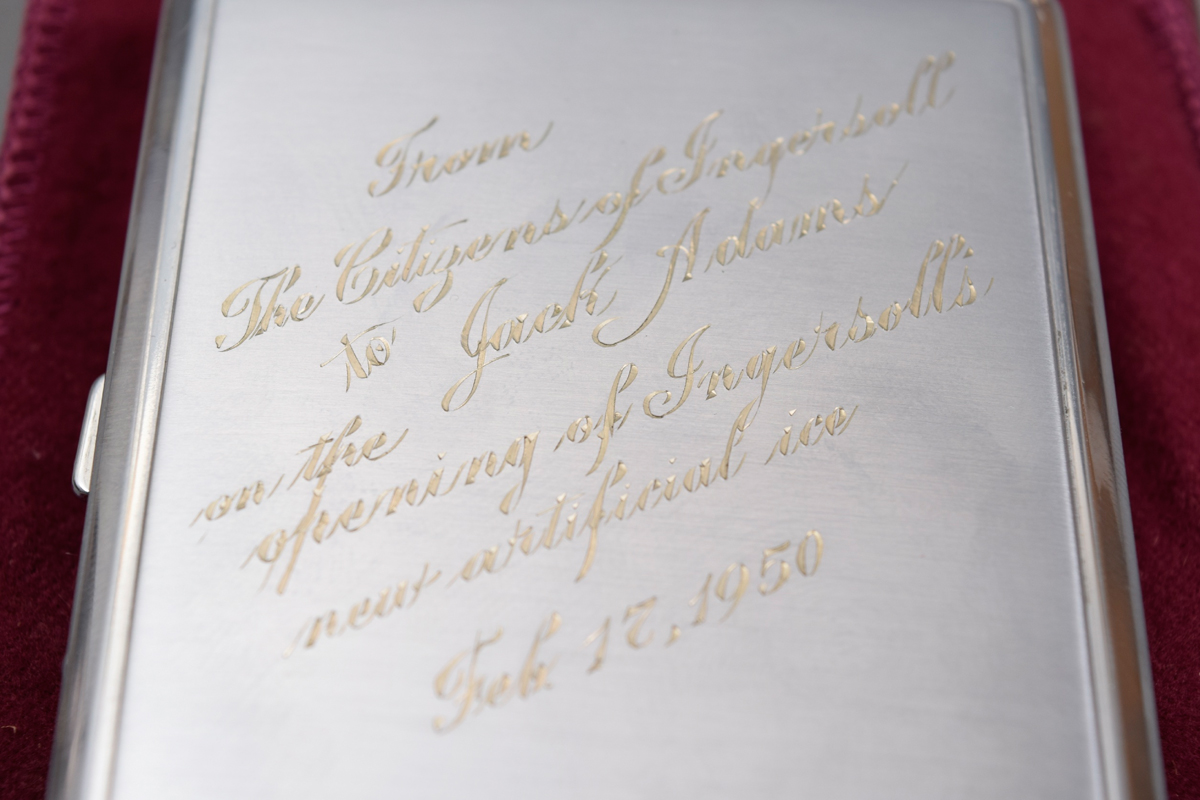 From
The Citizens of Ingersoll
to Jack Adams
on the
opening of Ingersoll's
new artificial ice
Feb. 17, 1950